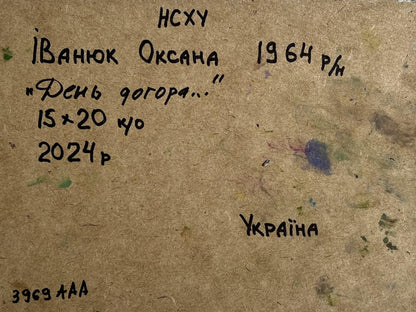 НСХУ
Іванюк Оксана 1964 р/н
„День догора..."
15×20 к/о
2024р
Україна
3969 ААА